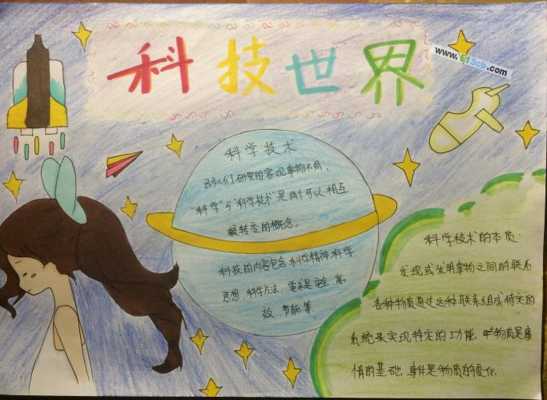 科技世界
科学技术
因人们研究的客观事物不同,
"科学"与"科学技术"是两个可以相互
被转变的概念。
科技的内容包含 科学精神 科学
思想 科学方法
效、节能等
科学技术的本质:
发现或发明事物之间的联系
各种物质通过这种联系组成特定的
系统来实现特定的功能
情的基础 事件是物质的变化